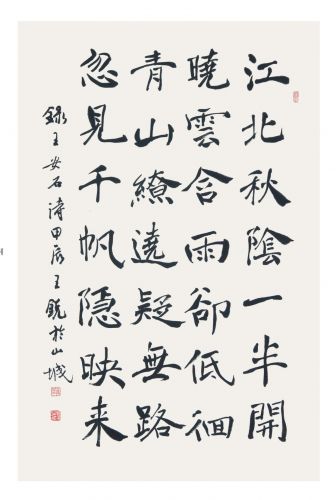 江北秋陰一半開
曉雲含雨卻低徊
青山繚遶疑無路
忽見千帆隱映来
録王安石詩甲辰王銳於山城